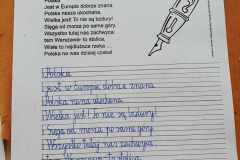 Polska
Jest w Europie dobrze znana
Polska nasza ukochana.
Wielka jest! To nie są bzdury!
Sięga od morza po same góry.
Wszystko tutaj nas zachwyca:
tam Warszawa- to stolica,
Wisła to najdłuższa rzeka ..
Polska na was dzieci czeka!
Polska
Jest w Europie dobrze znana
Polska nasza ukochana.
Wielka jest! To nie są bzdury!
Sięga od morza po same góry.
Wszystko tutaj nas zachwyca:
tam Warszawa- to stolica,